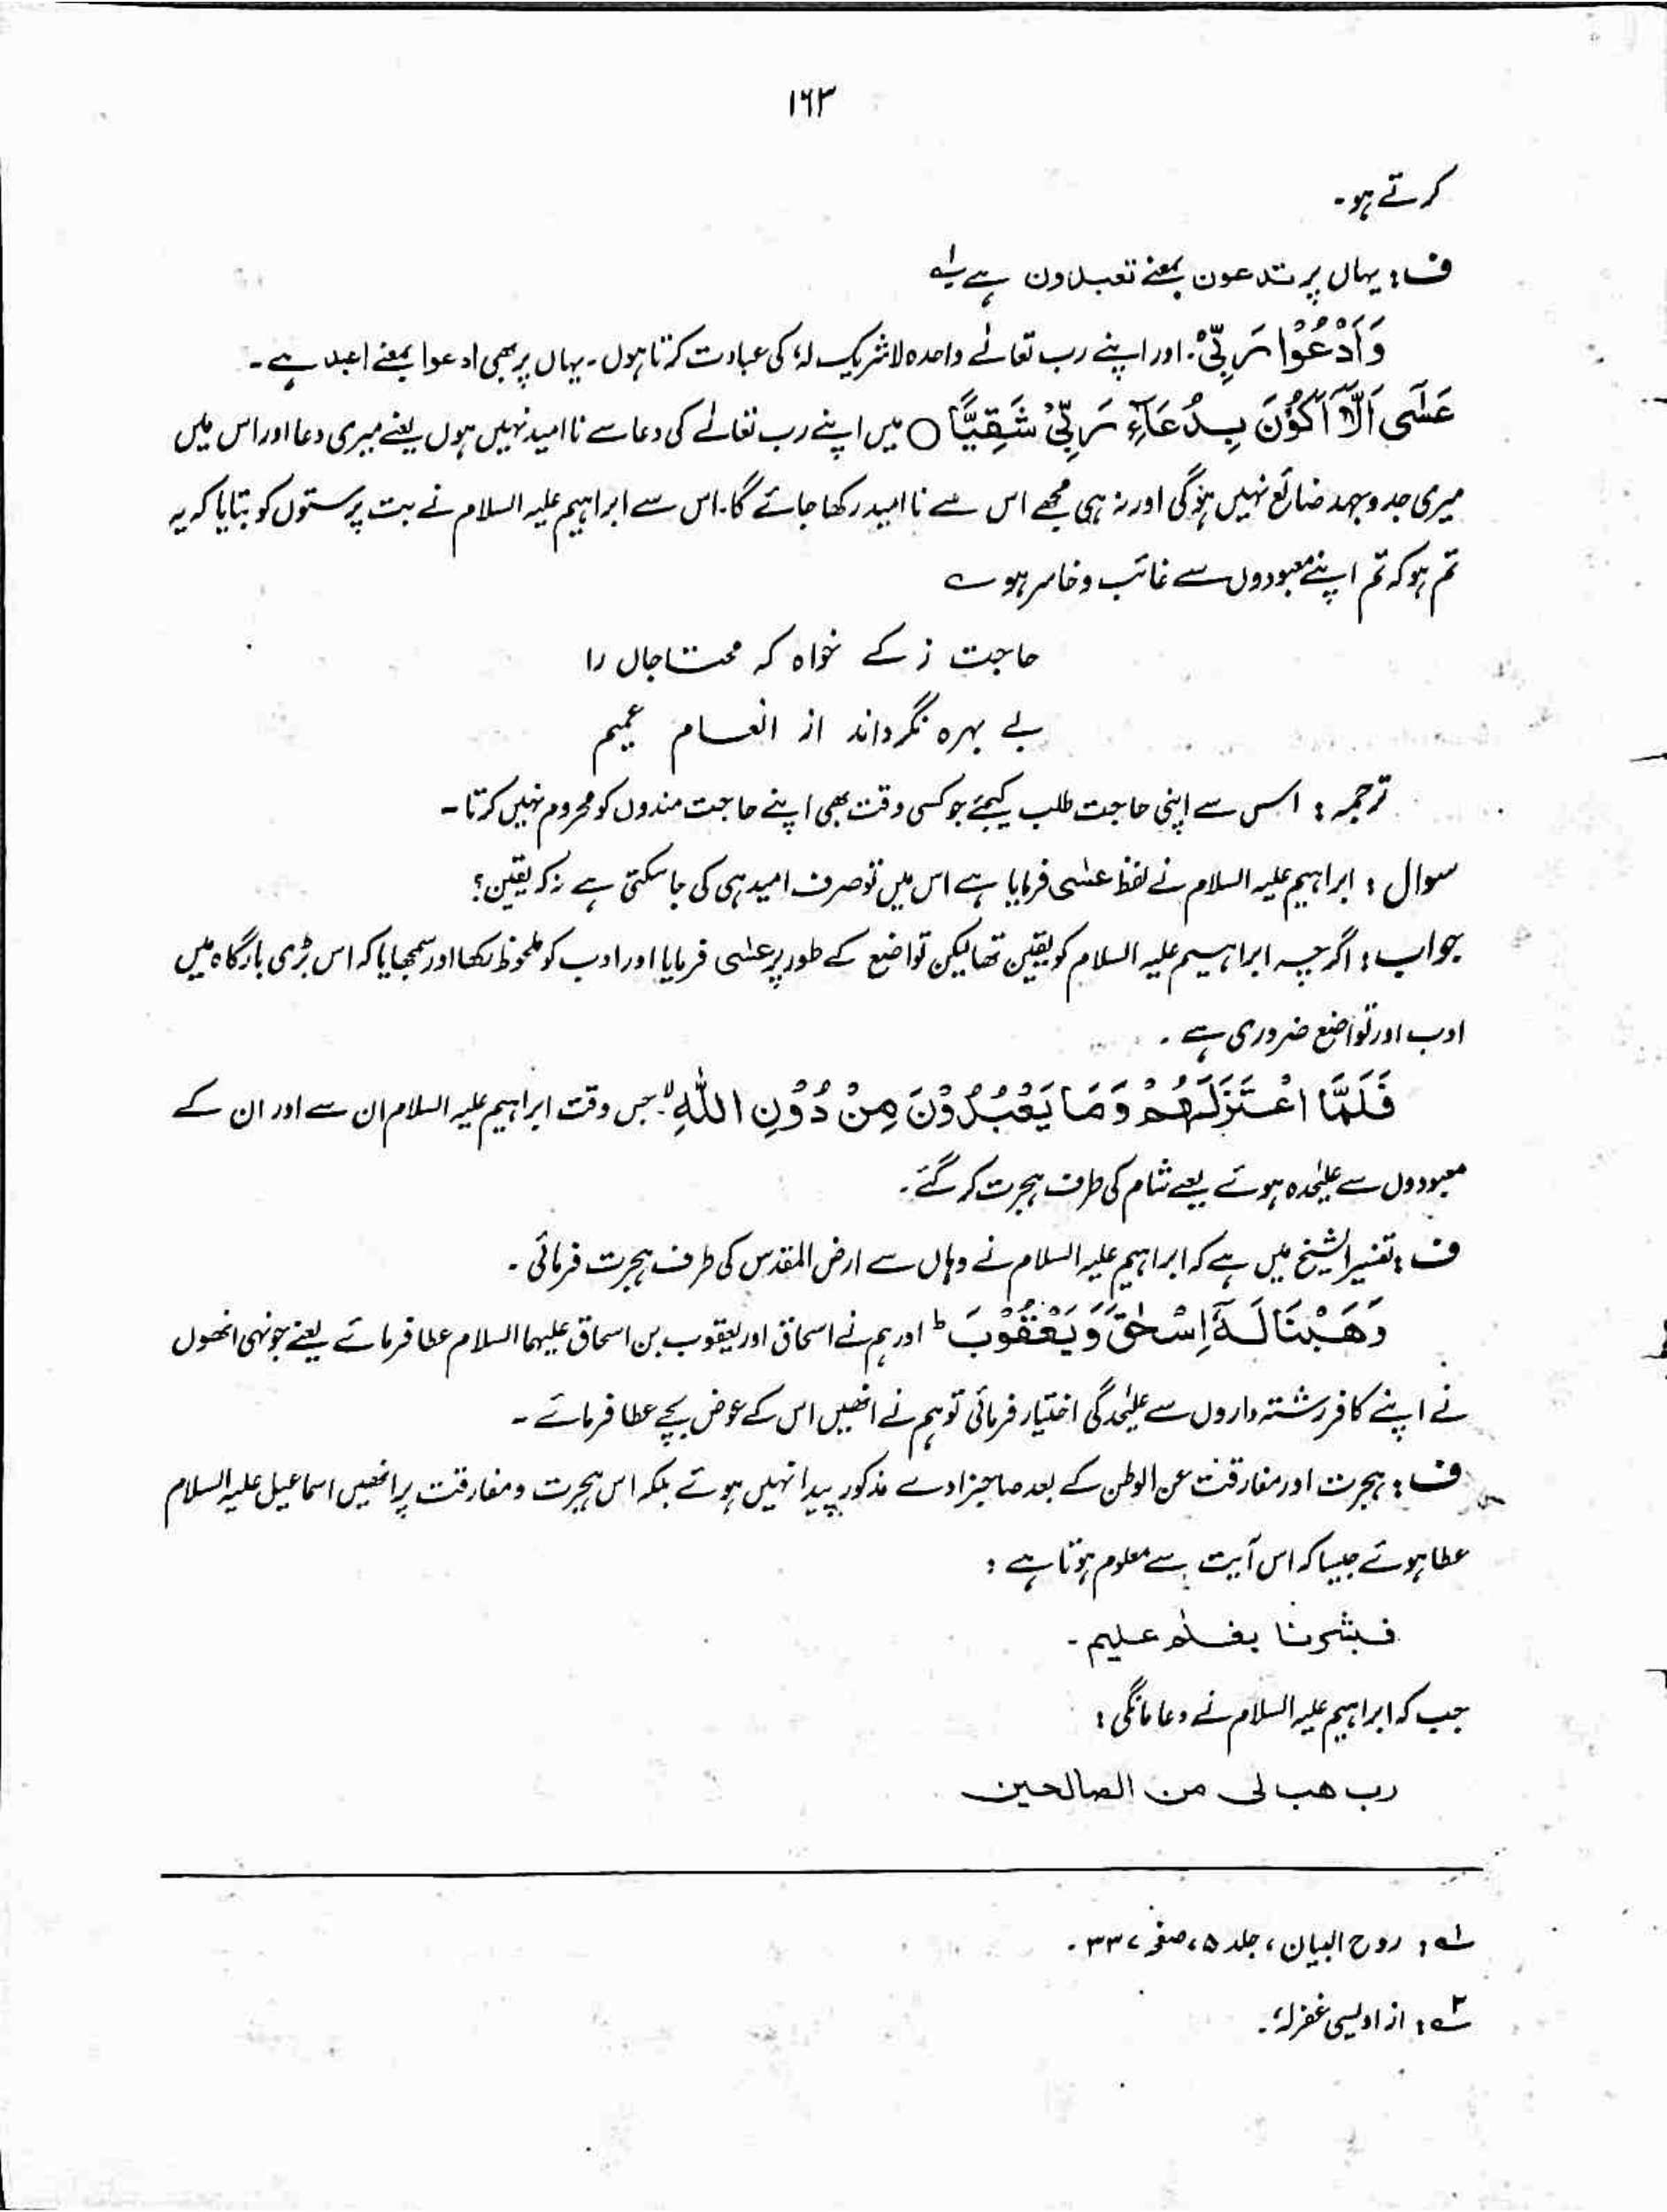 ۱۶۳
کرتے ہو۔
ف: یہاں پر تدعون بمعنے تعبدون ہے لہ
وَاَدْعُوْا رَبِّیْ ۖ. اور اپنے رب تعالےٰ واحدہ لاشریک لہٗ کی عبادت کرتا ہوں۔ یہاں پر بھی ادعوا بمعنے اعبد ہے۔
عَسٰٓی اَلَّآ اَکُوْنَ بِدُعَآءِ رَبِّیْ شَقِیًّا ○ میں اپنے رب تعالےٰ کی دعا سے نا امید نہیں ہوں یعنے میری دعا اور اس میں
میری جد و جہد ضائع نہیں ہوگی اور نہ ہی مجھے اس سے نا امید رکھا جائے گا۔ اس سے ابراہیم علیہ السلام نے بت پرستوں کو بتایا کہ یہ
تم ہو کہ تم اپنے معبودوں سے خائب و خاسر ہو ے
حاجت ز کے خواہ کہ محتاجاں را
بے بہرہ نگرداند از انعام عمیم
ترجمہ: اس سے اپنی حاجت طلب کیجئے جو کسی وقت بھی اپنے حاجت مندوں کو محروم نہیں کرتا۔
سوال: ابراہیم علیہ السلام نے لفظ عسٰی فرمایا ہے اس میں تو صرف امید ہی کی جا سکتی ہے نہ کہ یقین؟
جواب: اگرچہ ابراہیم علیہ السلام کو یقین تھا لیکن تواضع کے طور پر عسٰی فرمایا اور ادب کو ملحوظ رکھا اور سمجھایا کہ اس بڑی بارگاہ میں
ادب اور تواضع ضروری ہے۔
فَلَمَّا اعْتَزَلَھُمْ وَمَا یَعْبُدُوْنَ مِنْ دُوْنِ اللّٰہِ ۙ. جس وقت ابراہیم علیہ السلام ان سے اور ان کے
معبودوں سے علیٰحدہ ہوئے یعنے شام کی طرف ہجرت کر گئے۔
ف: تفسیر الشیخ میں ہے کہ ابراہیم علیہ السلام نے وہاں سے ارض المقدس کی طرف ہجرت فرمائی۔
وَھَبْنَا لَہٗٓ اِسْحٰقَ وَ یَعْقُوْبَ ط اور ہم نے اسحاق اور یعقوب بن اسحاق علیہما السلام عطا فرمائے یعنے جونہی انھوں
نے اپنے کافر رشتہ داروں سے علیٰحدگی اختیار فرمائی تو ہم نے انھیں اس کے عوض بچے عطا فرمائے۔
ف: ہجرت اور مفارقت عن الوطن کے بعد صاحبزادے مذکور پیدا نہیں ہوئے بلکہ اس ہجرت و مفارقت پر انھیں اسماعیل علیہ السلام
عطا ہوئے جیسا کہ اس آیت سے معلوم ہوتا ہے:
فبشرنا بغلٰم علیم۔
جب کہ ابراہیم علیہ السلام نے دعا مانگی:
رب ھب لی من الصالحین
لہ: روح البیان، جلد ۵، صفحہ ۳۳۷۔
۲ہ: از اویسی غفرلہٗ۔